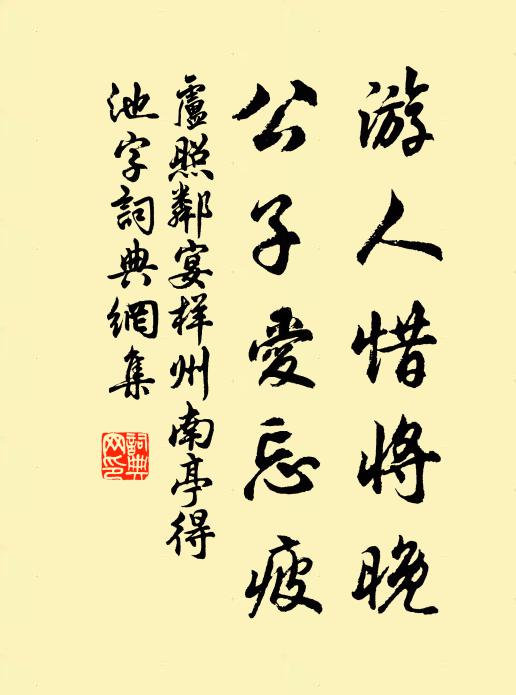 游人惜将晚
公子愛忘疲
盧照鄰宴梓州南亭得
池字詞典網集
詞典
网印